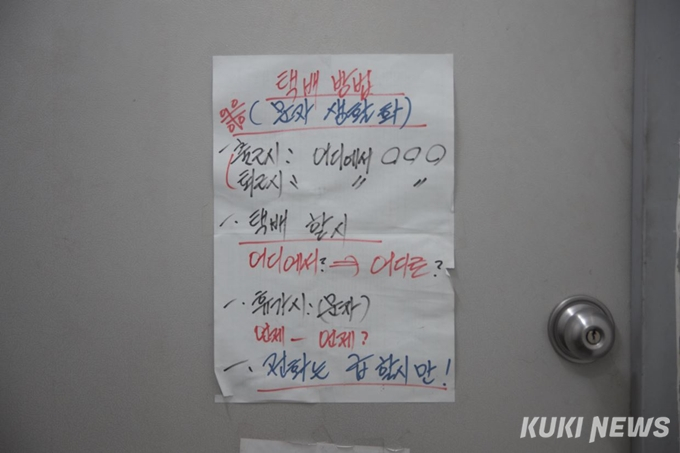 택배 방법
(문자 생활화)
출근시: 어디에서 ○○○
퇴근시 〃 〃 〃
택배 할시
어디에서? ⇒ 어디로?
휴가시: (문자)
언제 - 언제?
전화는 급 할시만!
KUKI NEWS